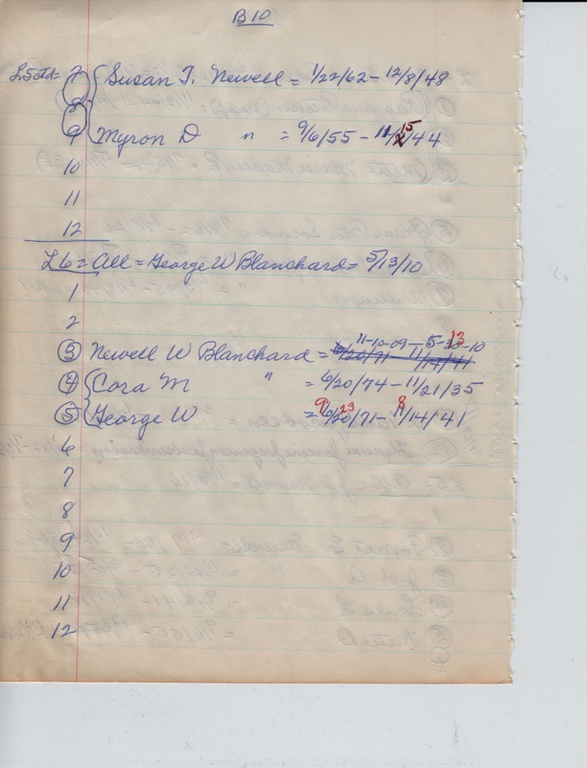 B10
L5 Std = 7 Susan T. Newell = 1/22/62 - 12/8/48
8
9 Myron D " = 9/6/55 - 11/15/44
10
11
12
L6 = All = George W Blanchard = 5/13/10
1
2
11-10-09 - 5-13-10
3 Newell W Blanchard =
4 Cora M " = 6/20/74 - 11/21/35
5 George W = 9/23/71 - 8/14/41
6
7
8
9
10
11
12